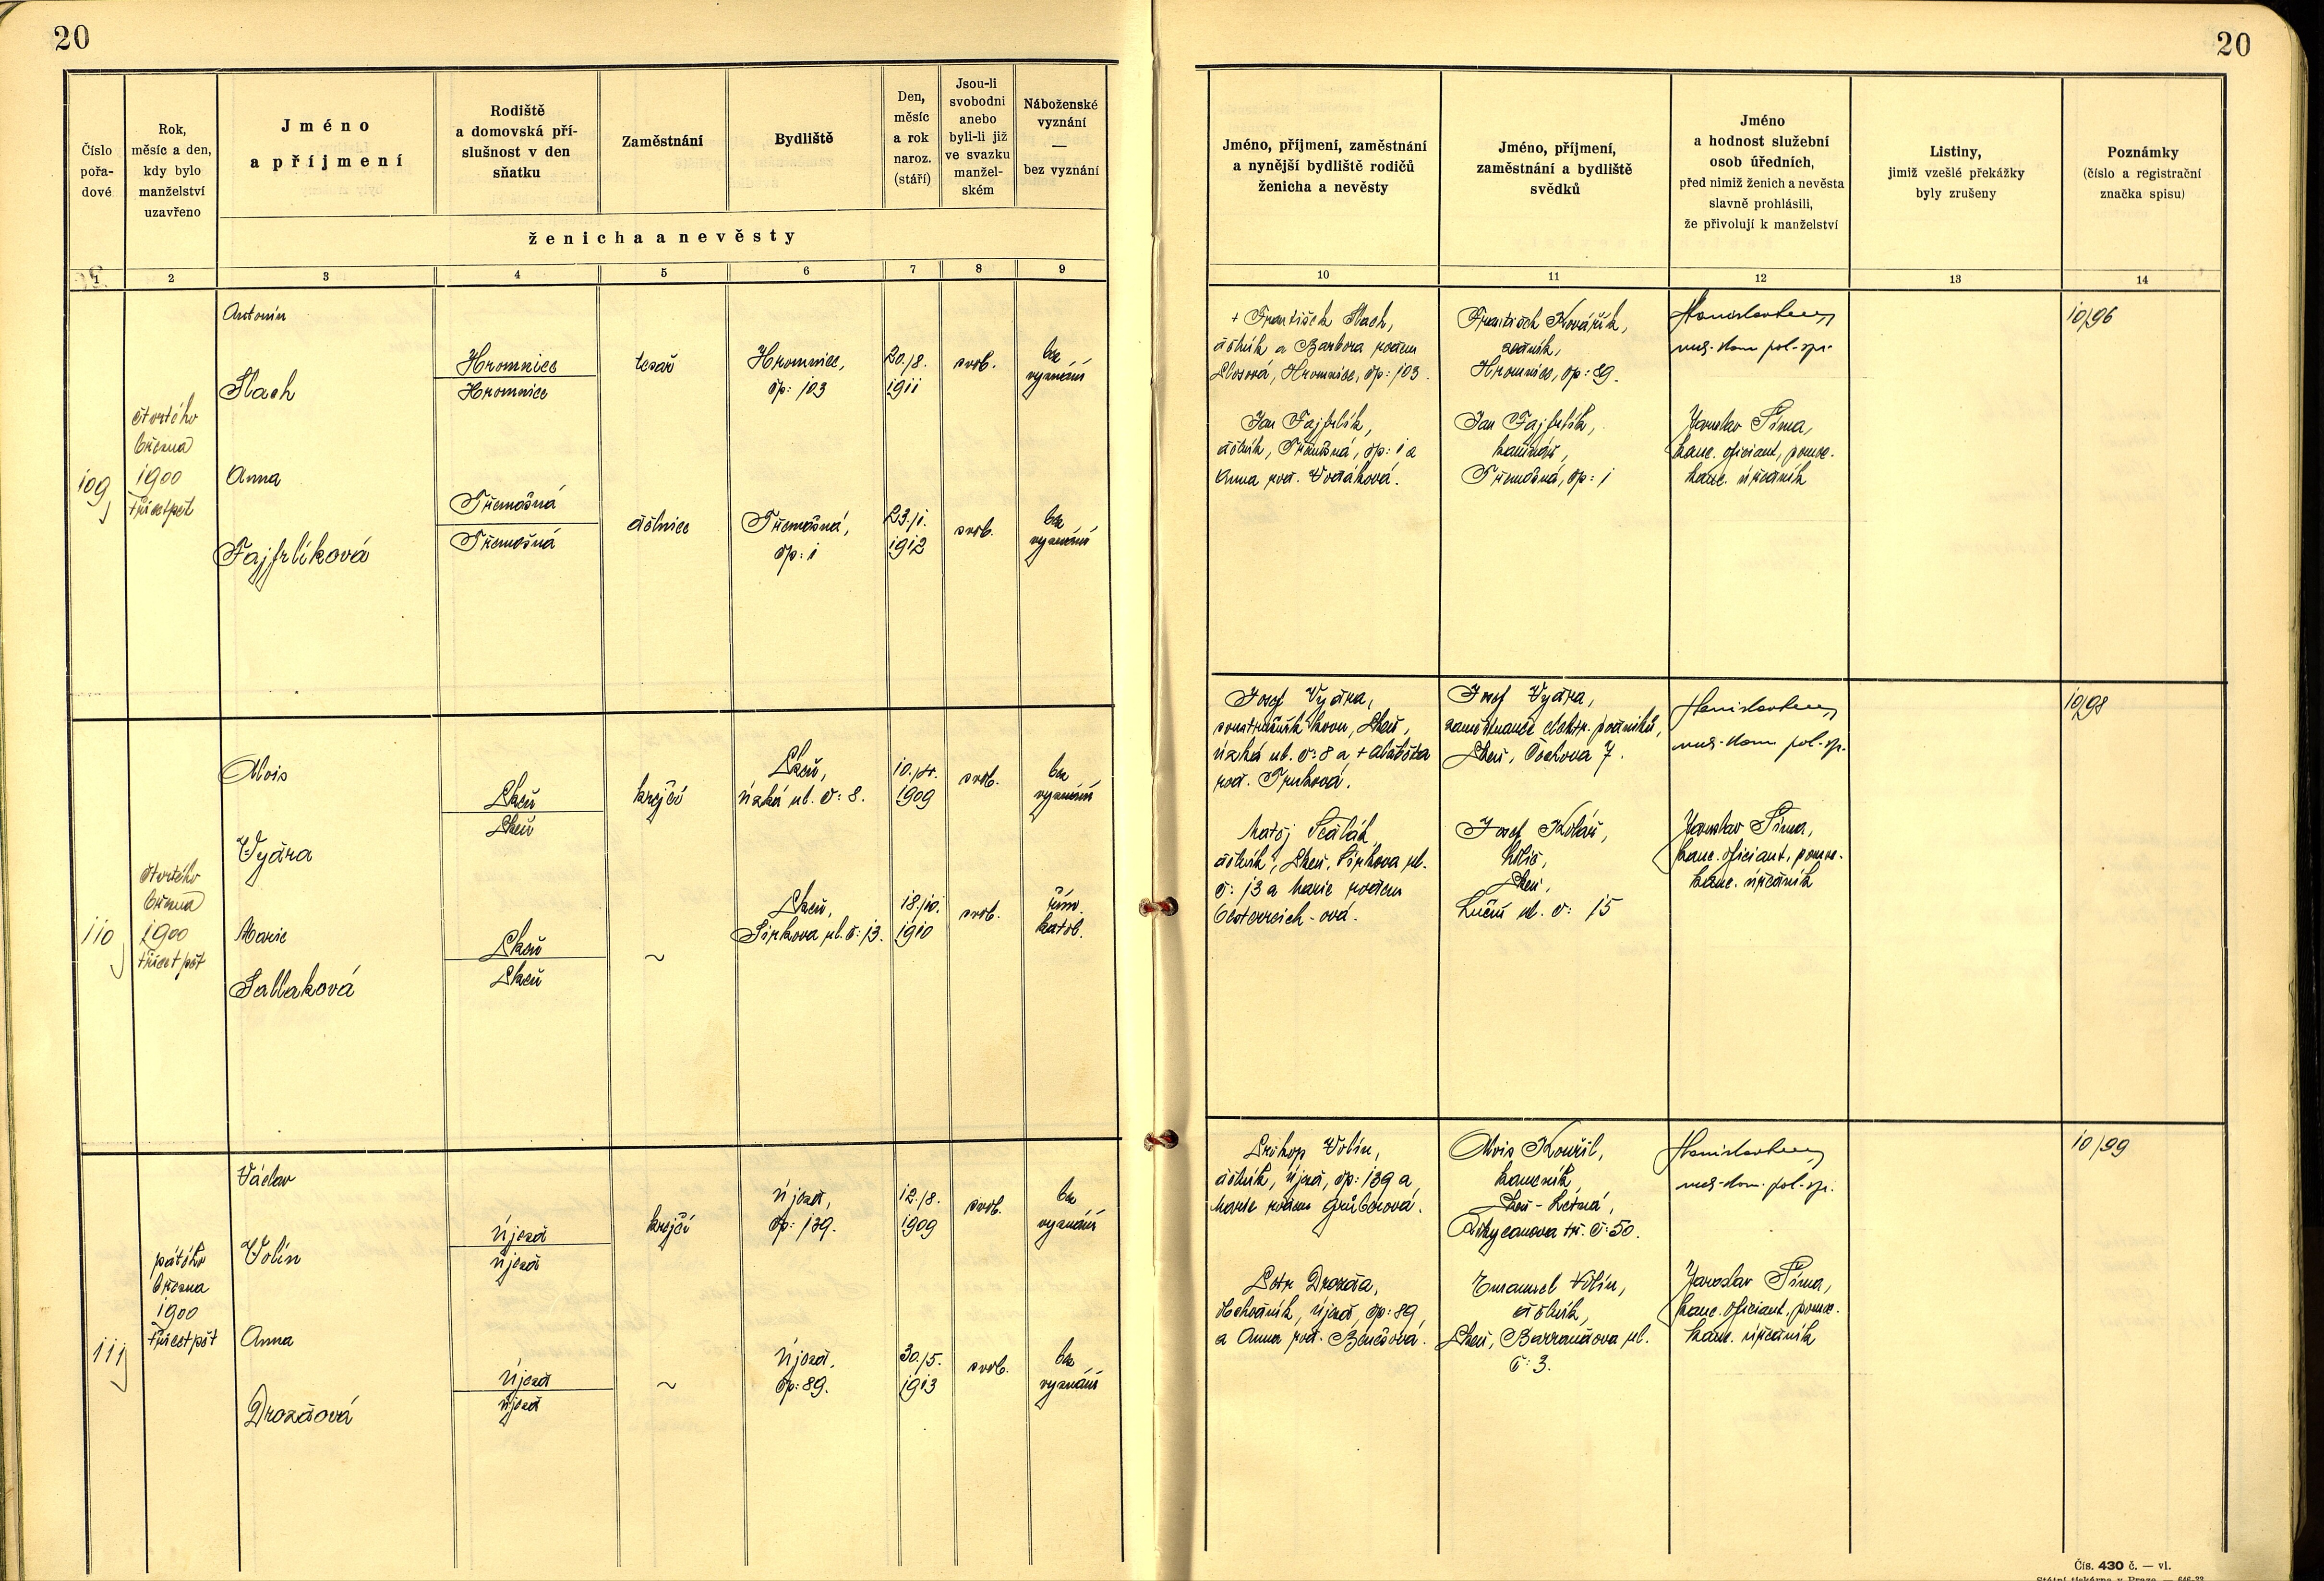 20
20
Číslo
pořa-
dové
Rok,
měsíc a den,
kdy bylo
manželství
uzavřeno
Jméno
a příjmení
Rodiště
a domovská pří-
slušnost v den
sňatku
Zaměstnání
Bydliště
Den,
měsíc
a rok
naroz.
(stáří)
Jsou-li
svobodni
anebo
byli-li již
ve svazku
manžel-
ském
Náboženské
vyznání
—
bez vyznání
ženicha a nevěsty
Jméno, příjmení, zaměstnání
a nynější bydliště rodičů
ženicha a nevěsty
Jméno, příjmení,
zaměstnání a bydliště
svědků
Jméno
a hodnost služební
osob úředních,
před nimiž ženich a nevěsta
slavně prohlásili,
že přivolují k manželství
Listiny,
jimiž vzešlé překážky
byly zrušeny
Poznámky
(číslo a registrační
značka spisu)
1 2 3 4 5 6 7 8 9 10 11 12 13 14
109
čtvrtého
března
1900
třicetpět
Antonín
Hach
Hromnice
Hromnice
tesař
Hromnice,
čp: 103
20./8.
1911
svob.
bez
vyznání
Anna
Fajfrlíková
Třemošná
Třemošná
dělnice
Třemošná,
čp: 1
23./1.
1912
svob.
bez
vyznání
+ František Hach,
dělník a Barbora rodem
Hromnice, čp: 103.
Jan Fajfrlík,
dělník, Třemošná, čp: 1 a
Anna roz. Vodáková.
František Kovářík,
zedník,
Hromnice, čp: 89.
Jan Fajfrlík,
Třemošná, čp: 1
Jaroslav Šíma,
kanc. oficiant, pomoc.
kanc. úředník
10/96
110
čtvrtého
března
1900
třicetpět
Alois
Vydra
Plzeň
Plzeň
krejčí
Plzeň,
Úzká ul. č: 8.
10./4.
1909
svob.
bez
vyznání
Marie
Sallaková
Plzeň
Plzeň
~
Plzeň,
Sirkova ul. č: 13.
18./10.
1910
svob.
řím.
katol.
Josef Vydra,
Plzeň,
Úzká ul. č: 8 a + Alžběta
roz. Trunková.
Matěj
dělník, Plzeň, Sirkova ul.
č: 13 a Marie rodem
Oesterreich-ová.
Josef Vydra,
zaměstnanec elektr. podniků,
Plzeň, Čechova 7.
Josef Kolář,
Plzeň,
Luční ul. č: 15
Jaroslav Šíma,
kanc. oficiant, pomoc.
kanc. úředník
10/98
111
pátého
března
1900
třicetpět
Václav
Volín
Újezd
Újezd
krejčí
Újezd,
čp: 139.
12./8.
1909
svob.
bez
vyznání
Anna
Drozdová
Újezd
Újezd
~
Újezd,
čp: 89.
30./5.
1913
svob.
bez
vyznání
Prokop Volín,
dělník, Újezd, čp: 139 a
Marie rodem Grüberová.
Petr Drozda,
obchodník, Újezd, čp: 89
a Anna roz. Benešová.
Alois Kouřil,
kameník,
Plzeň-Letná,
Rokycanova tř. č: 50.
Emanuel Volín,
dělník,
Plzeň, Barrandova ul.
č: 3.
Jaroslav Šíma,
kanc. oficiant, pomoc.
kanc. úředník
10/99
Čís. 430 č. — vl.